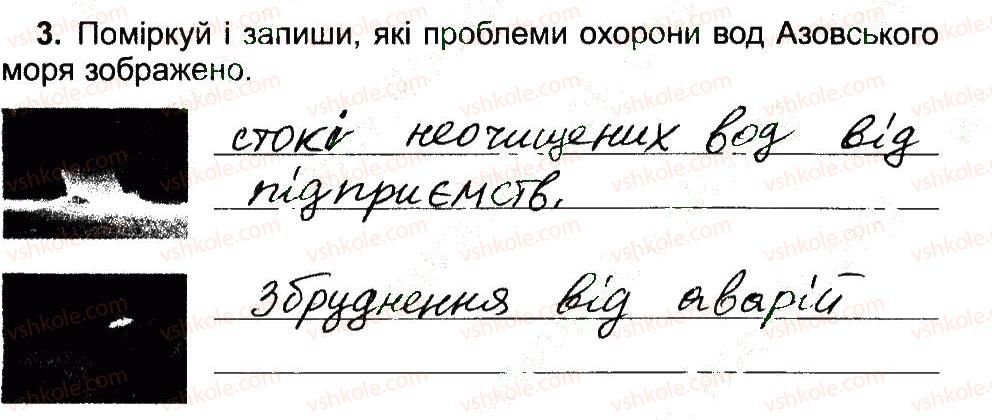 3. Поміркуй і запиши, які проблеми охорони вод Азовського
моря зображено.
стокі неочищених вод від
підприємств.
Збруднення від аварій